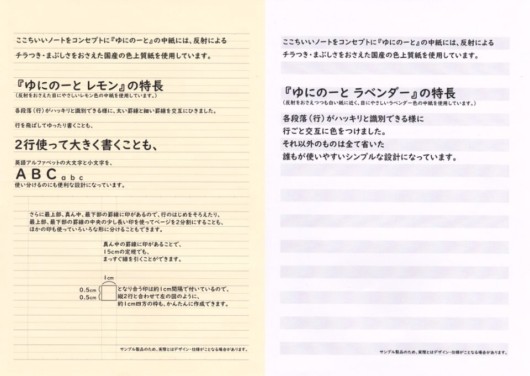 ここちいいノートをコンセプトに『ゆにのーと』の中紙には、反射による
チラつき・まぶしさをおさえた国産の色上質紙を使用しています。
『ゆにのーと レモン』の特長
(反射をおさえた目にやさしいレモン色の中紙を使用しています。)
各段落(行)がハッキリと識別できる様に、太い罫線と細い罫線を交互にひきました。
行を飛ばしてゆったり書くことも、
2行使って大きく書くことも、
英語アルファベットの大文字と小文字を、
ABC a b c
使い分けるのにも便利な設計になっています。
さらに最上部、真ん中、最下部の罫線に印があるので、行のはじめをそろえたり、
最上部、最下部の罫線の中央の少し長い印を使ってページを2分割にすることも、
ほかの印も使っていろいろな形に分けることもできます。
真ん中の罫線に印があることで、
15cmの定規でも、
まっすぐ線を引くことができます。
1cm
0.5cm
0.5cm
となり合う印は約1cm間隔で付いているので、
縦2行と合わせて左の図のように、
約1cm四方の枠も、かんたんに作成できます。
サンプル製品のため、実際とはデザイン・仕様がことなる場合があります。
ここちいいノートをコンセプトに『ゆにのーと』の中紙には、反射による
チラつき・まぶしさをおさえた国産の色上質紙を使用しています。
『ゆにのーと ラベンダー』の特長
(反射をおさえつつも白い紙に近く、目にやさしいラベンダー色の中紙を使用しています。)
各段落(行)がハッキリと識別できる様に
行ごと交互に色をつけました。
それ以外のものは全て省いた
誰もが使いやすいシンプルな設計になっています。
サンプル製品のため、実際とはデザイン・仕様がことなる場合があります。